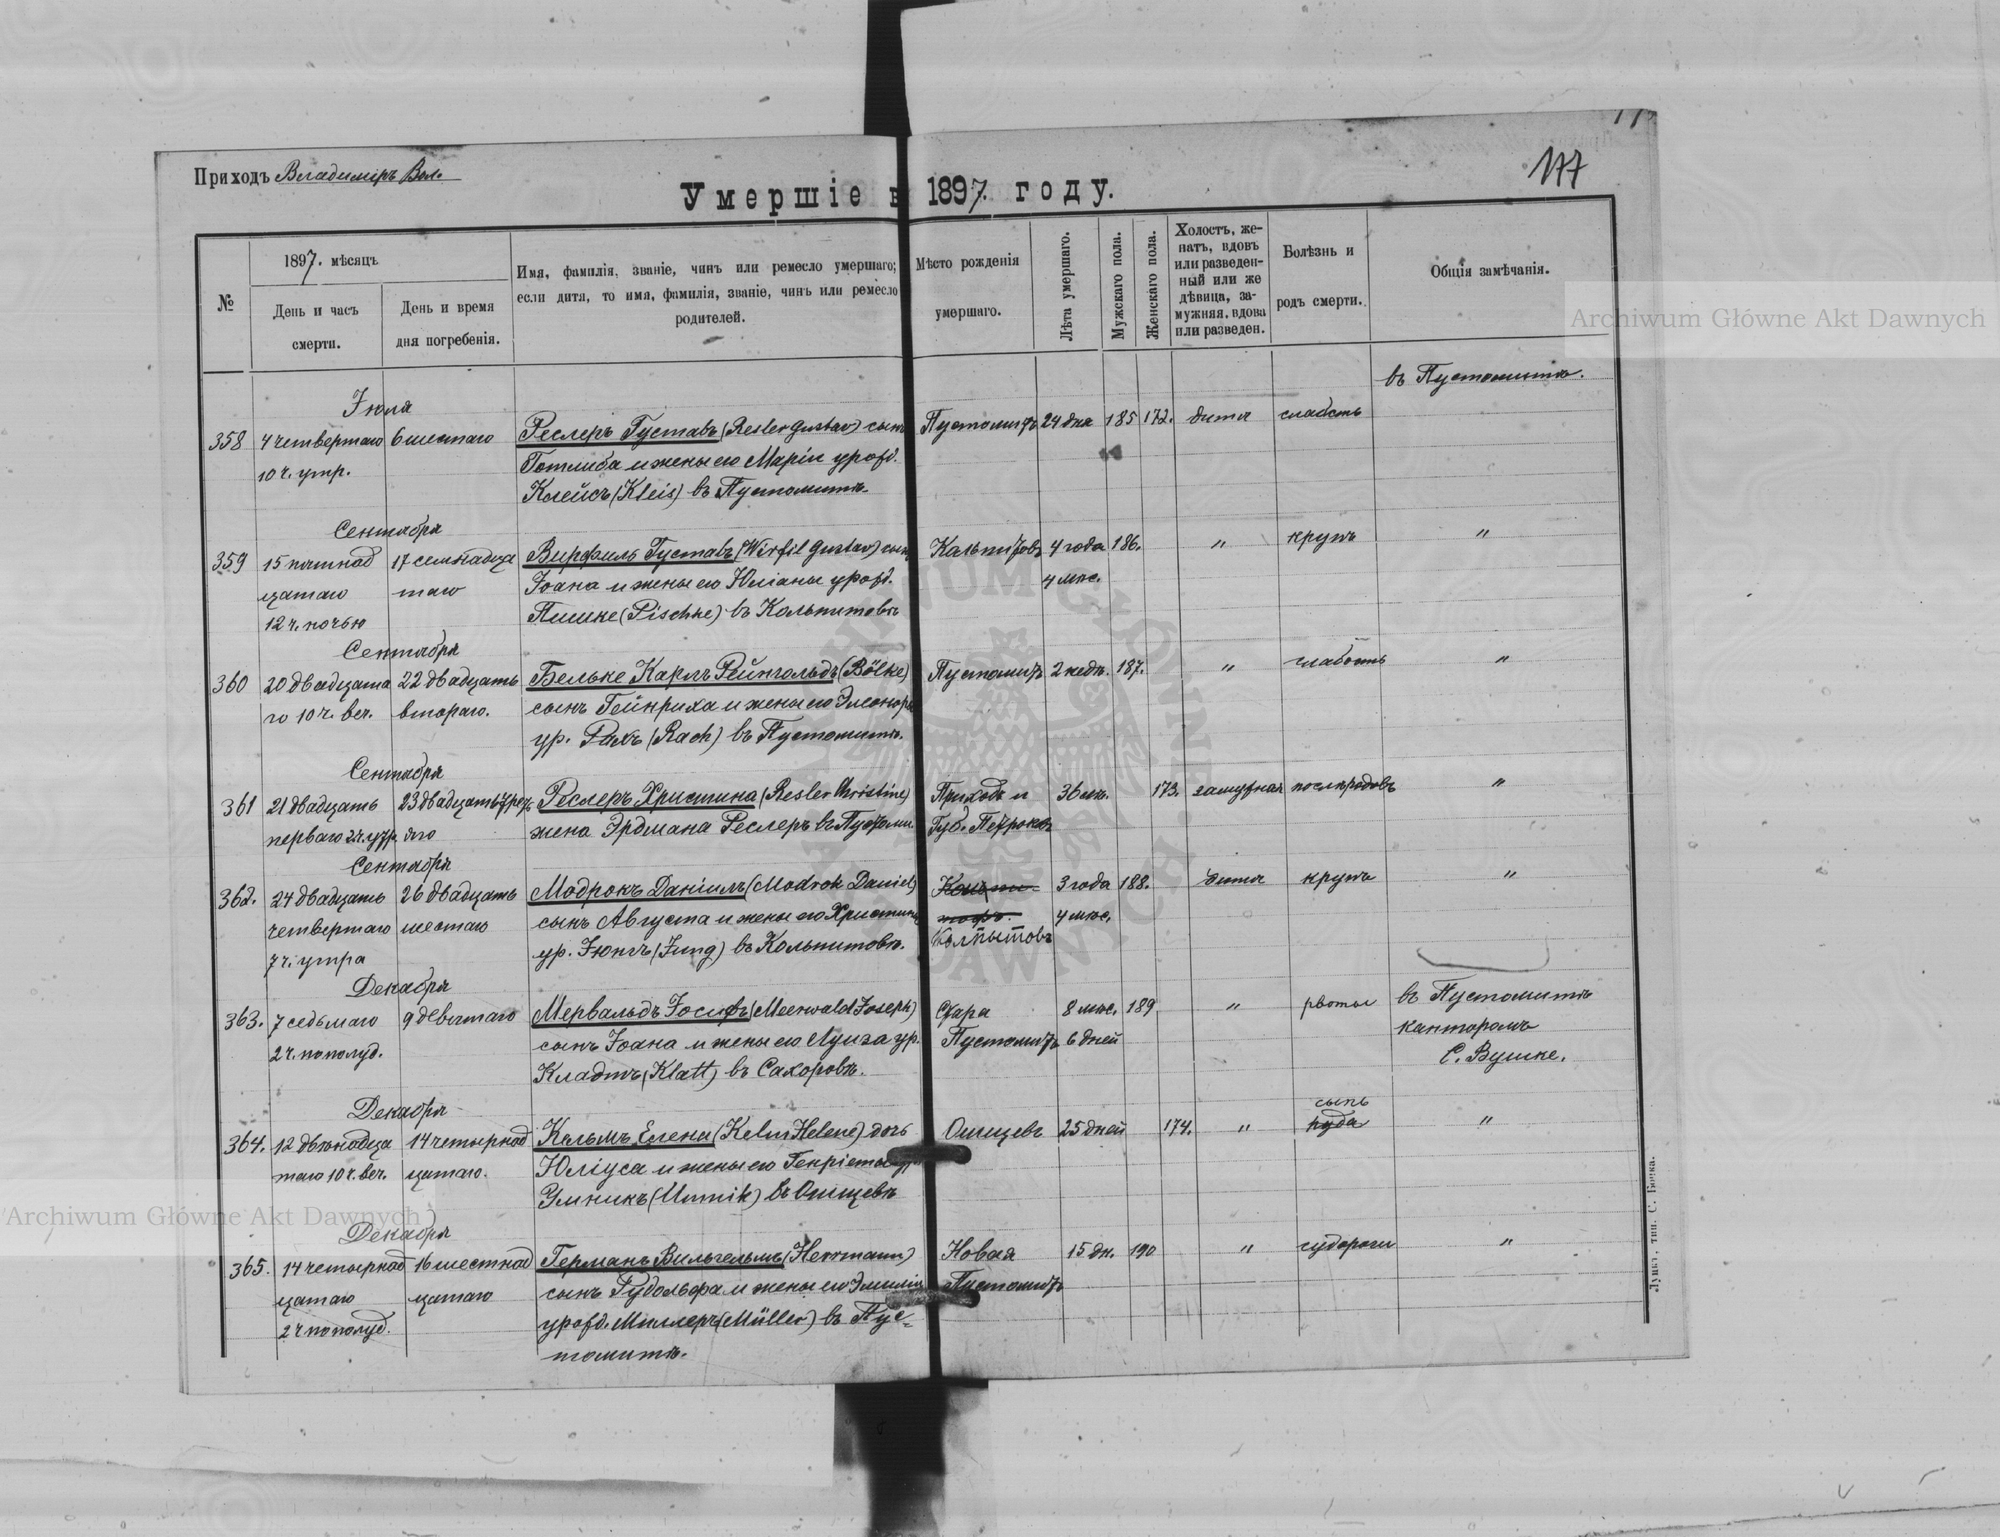 177
Приходъ Владиміръ Вол.
Умершіе в 1897. году.
№
1897. мѣсяцъ
День и часъ смерти.
День и время дня погребенія.
Имя, фамилія, званіе, чинъ или ремесло умершаго;
если дитя, то имя, фамилія, званіе, чинъ или ремесло
родителей.
Мѣсто рожденія
умершаго.
Лѣта умершаго.
Мужскаго пола.
Женскаго пола.
Холостъ, же-
натъ, вдовъ
или разведен-
ный или же
дѣвица, за-
мужняя, вдова
или разведен.
Болѣзнь и
родъ смерти.
Общія замѣчанія.
Archiwum Główne Akt Dawnych
въ Пустомитѣ.
Іюля
358 4 четвертаго 6 шестаго Реслеръ Густавъ (Resler Gustav) сынъ Пустомитъ 24 дня 185 172. дитя слабость
10 ч. утр. Готлиба и жены его Маріи урожд.
Клейсъ (Kleis) въ Пустомитѣ.
Сентября
359 15 пятнад 17 семнадца Вирфиль Густавъ (Wirfil Gustav) сынъ Кольпитовъ 4 года 186. " крупъ "
цатаго таго Іоана и жены его Юліаны урожд. 4 мѣс.
12 ч. ночью Пишке (Pischke) въ Кольпитовѣ
Сентября
360 20 двадцата 22 двадцать Бельке Карлъ Рейнгольдъ (Bölke) Пустомитъ 2 недѣ. 187. " слабость "
го 10 ч. веч. втораго. сынъ Гейнриха и жены его Элеоноры
ур. Рахъ (Rach) въ Пустомитѣ.
Сентября
361 21 двадцать 23 двадцать трет Реслеръ Христина (Resler Christine) Приходъ и 36 лѣ. 173. замужняя послѣ родовъ "
перваго 2 ч. утр. яго жена Эрдмана Реслеръ въ Пустоми. Губ. Петроковъ
Сентября
362. 24 двадцать 26 двадцать Модрокъ Даніилъ (Modrok Daniel) 3 года 188. дитя крупъ "
четвертаго шестаго сынъ Августа и жены его Христины 4 мѣс.
7 ч. утра ур. Юнгъ (Jung) въ Кольпитовѣ. Колпытовъ
Декабря
363. 7 седьмаго 9 девятаго Мервальдъ Іосифъ (Meerwald Joseph) Стара 8 мѣс. 189 " рвоты въ Пустомитѣ
2 ч. пополуд. сынъ Іоана и жены его Луиза ур. Пустомитъ 6 дней канторомъ
Кладтъ (Klatt) въ Сахоровѣ. С. Вушке.
Декабря сыпь
364. 12 двѣнадца 14 четырнад Кельмъ Елена (Kelm Helene) дочь Ощцевъ 25 дней 174. " "
таго 10 ч. веч. цатаго. Юліуса и жены его Генріеты ур.
Умникъ (Umnik) въ Ощцевѣ
Archiwum Główne Akt Dawnych
Декабря
365. 14 четырнад 16 шестнад Германъ Вильгельмъ (Herrmann) Новая 15 дн. 190 " судороги "
цатаго цатаго сынъ Рудольфа и жены его Эмиліи Пустомитъ
2 ч пополуд. урожд. Миллеръ (Müller) въ Пус=
томитѣ.